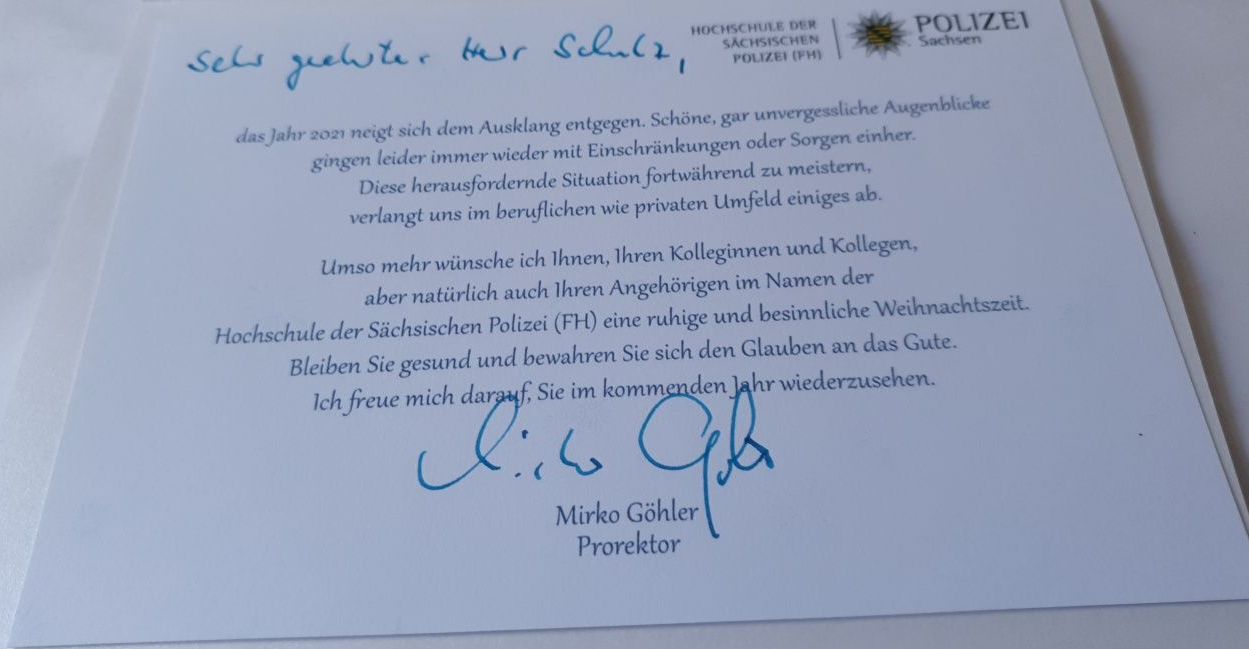 Sehr geehrter Herr Schulz,
HOCHSCHULE DER
SÄCHSISCHEN
POLIZEI (FH)
POLIZEI
Sachsen
das Jahr 2021 neigt sich dem Ausklang entgegen. Schöne, gar unvergessliche Augenblicke
gingen leider immer wieder mit Einschränkungen oder Sorgen einher.
Diese herausfordernde Situation fortwährend zu meistern,
verlangt uns im beruflichen wie privaten Umfeld einiges ab.
Umso mehr wünsche ich Ihnen, Ihren Kolleginnen und Kollegen,
aber natürlich auch Ihren Angehörigen im Namen der
Hochschule der Sächsischen Polizei (FH) eine ruhige und besinnliche Weihnachtszeit.
Bleiben Sie gesund und bewahren Sie sich den Glauben an das Gute.
Ich freue mich darauf, Sie im kommenden Jahr wiederzusehen.
Mirko Göhler
Mirko Göhler
Prorektor